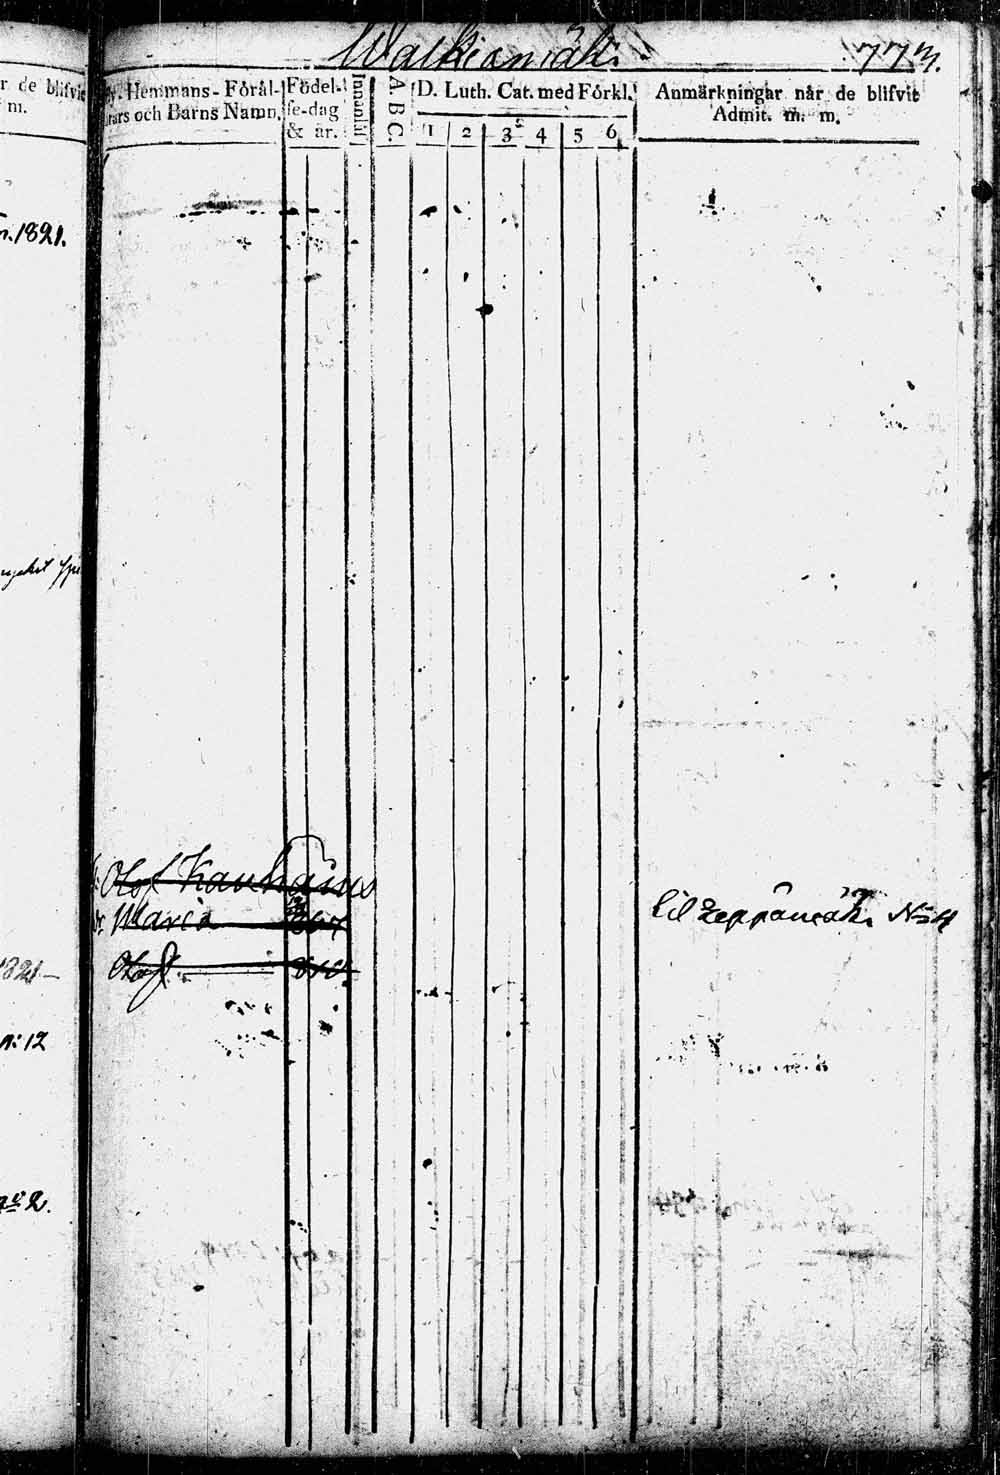 Walkiamäki 773.
r de blifvit
m.
By. Hemmans- Föräl-
drars och Barns Namn.
Födel-
se-dag
& år.
Innanläs
A B C.
D. Luth. Cat. med Förkl.
1 2 3 4 5 6
Anmärkningar når de blifvit
Admit. m. m.
1821.
Olof Kauhanus
Maria 807
Olof 810
til Leppämäki No 4
1821
N: 12
No 2.